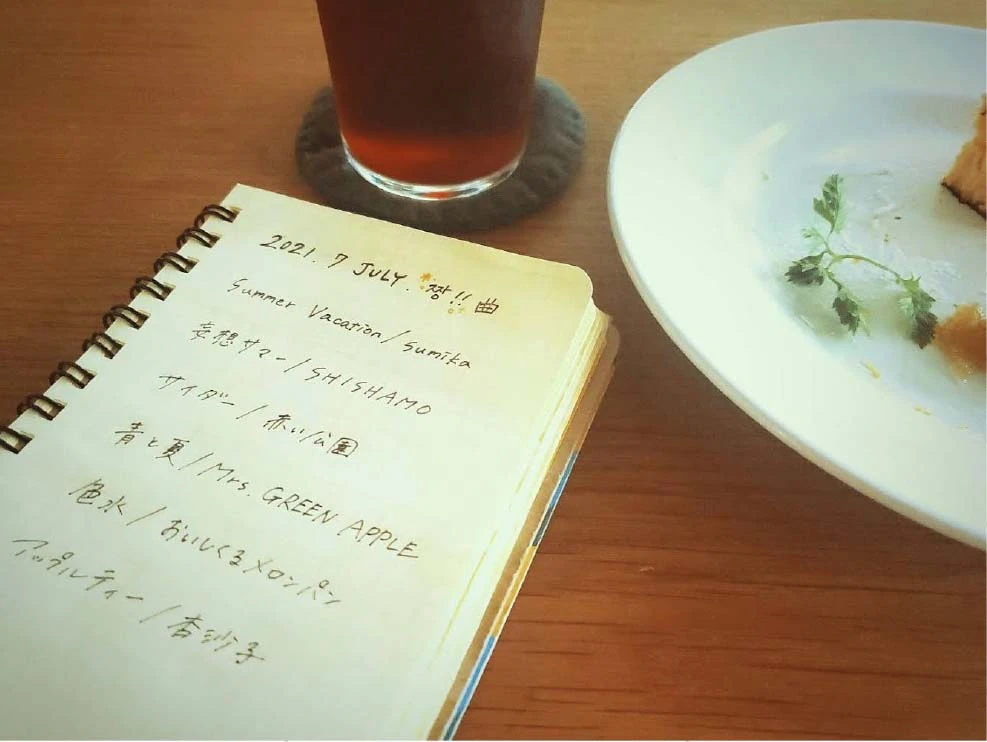 2021. 7 JULY. 짱!! 曲
Summer Vacation/sumika
妄想サマー/SHISHAMO
サイダー/赤い公園
青と夏/Mrs. GREEN APPLE
色水/おいしくるメロンパン
アップルティー/杏沙子